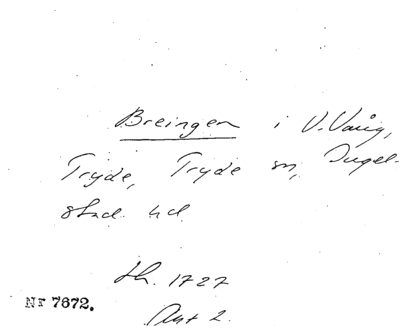 Breingen i V. Vång,
Tryde, Tryde sn, Ingel-
stad hd
Lh. 1727
Akt 2.
NF 7672.